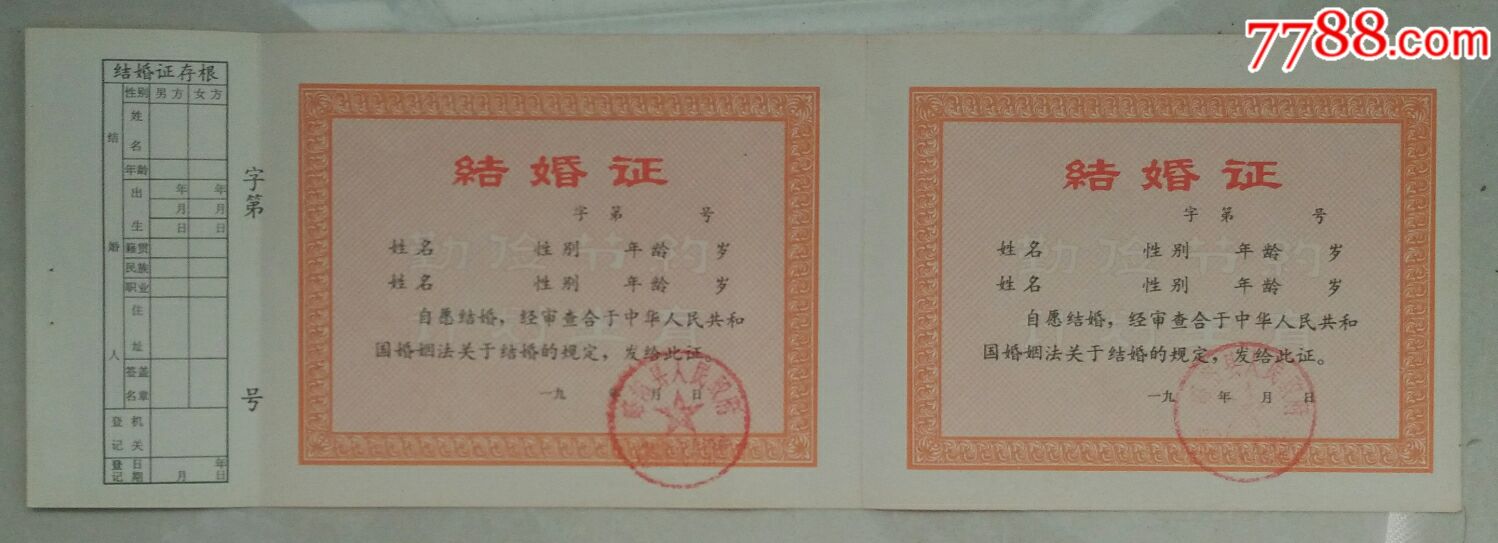 7788.com
结婚证存根
性别 男方 女方
姓名
年龄
出生
年 年
月 月
日 日
籍贯
民族
职业
住址
签名盖章
结婚人
登记机关
登记日期
年
月 日
字第 号
結婚证
字 第 号
姓名 性别 年龄 岁
姓名 性别 年龄 岁
自愿结婚，经审查合于中华人民共和
国婚姻法关于结婚的规定，发给此证。
一九 年 月 日
勤俭节约
县人民政府
結婚证
字 第 号
姓名 性别 年龄 岁
姓名 性别 年龄 岁
自愿结婚，经审查合于中华人民共和
国婚姻法关于结婚的规定，发给此证。
一九 年 月 日
勤俭节约
县人民政府